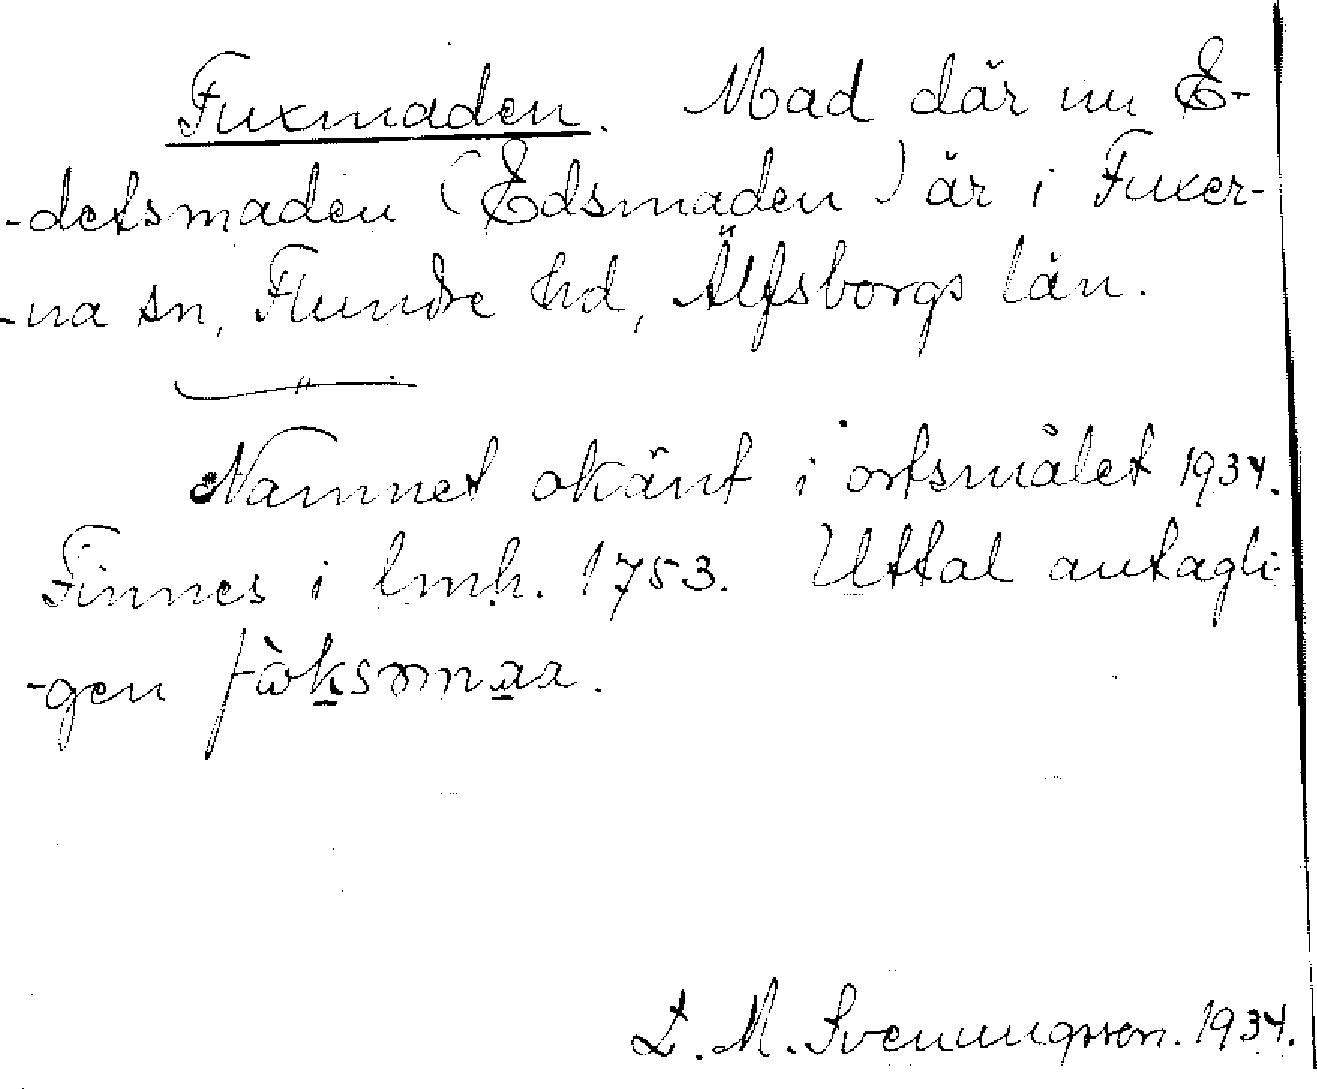 Fuxmaden. Mad där nu E-
-detsmaden (Edsmaden) är i Fuxer-
-na sn, Flundre hd, Älfsborgs län.
"
Namnet okänt i ortsmålet 1934.
Finnes i lmh. 1753. Uttal antagli-
-gen fὼksmaa.
L. M. Svenungsson. 1934.